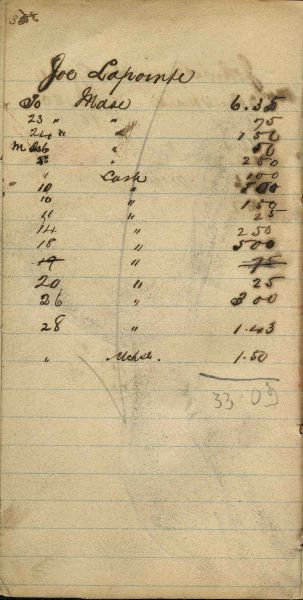 Joe Lapointe
To Mdse 6.35
23 " " 75
24 " " 1 50
" 50
" 2 50
" Cash 1 00
10 " 5 00
10 " 1 50
11 " 25
14 " 2 50
18 " 5 00
19 " 75
20 " 25
26 " 3 00
28 " 1.43
" Mdse. 1.50
33.09